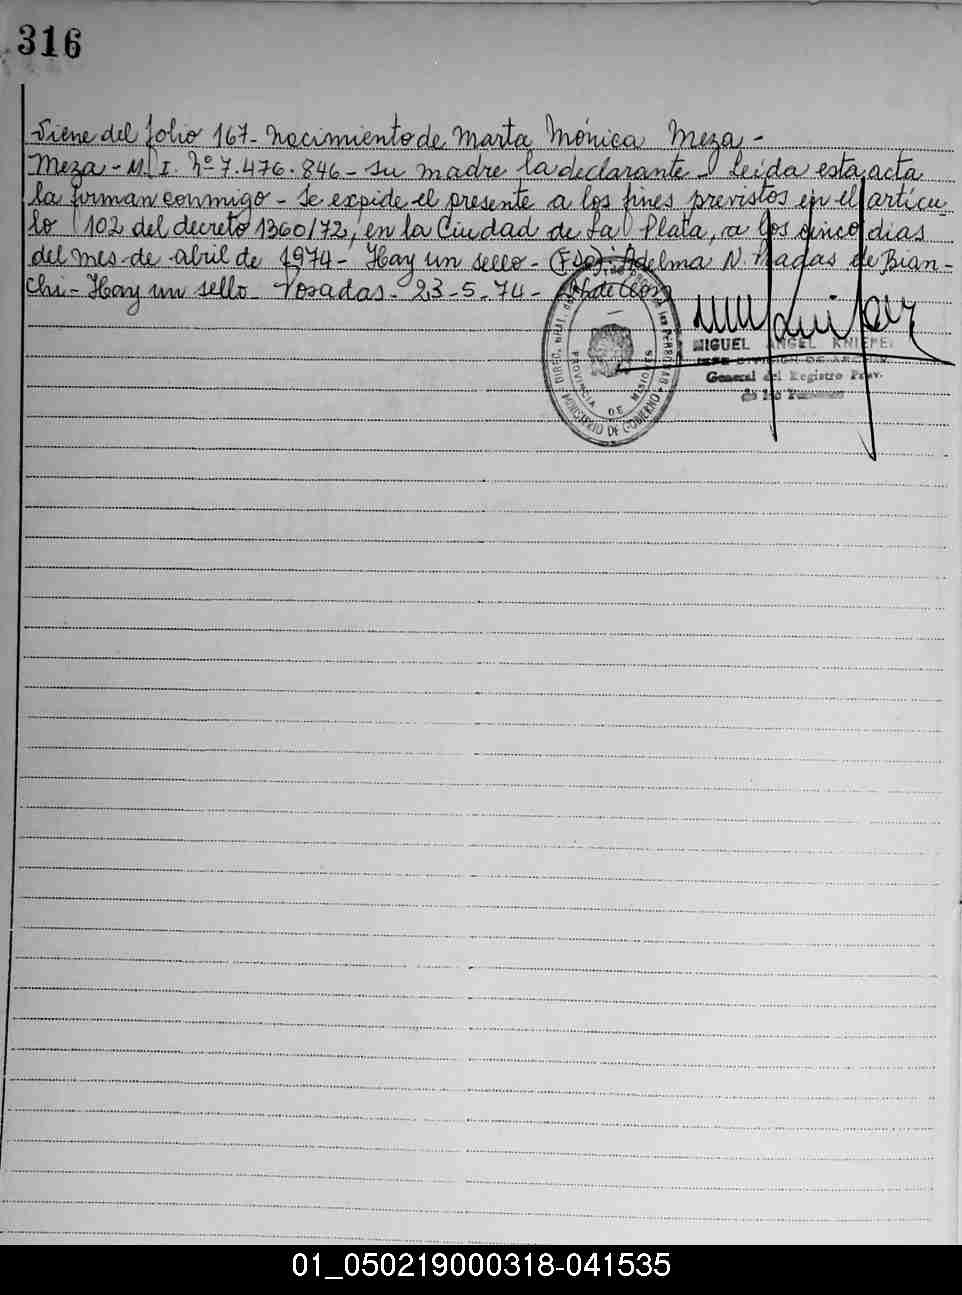 316
Viene del folio 167- Nacimiento de Marta Mónica Meza -
Meza - M. I. Nº 7.476.846 - su madre la declarante - Leída esta acta
la firman conmigo - Se expide el presente a los fines previstos en el artícu-
lo 102 del decreto 1360/72, en la Ciudad de La Plata, a los cinco dias
del mes de abril de 1974 - Hay un sello - (Fdo): Adelma N. de Bian-
chi - Hay un sello - Posadas - 23-5-74 -
MIGUEL ANGEL KNIEPEL
JEFE DIVISION DE ARCHIVO
General del Registro Prov.
de las Personas
DIREC. GRAL. DE LAS PERSONAS
PROVINCIA DE MISIONES
MINISTERIO DE GOBIERNO
01_050219000318-041535